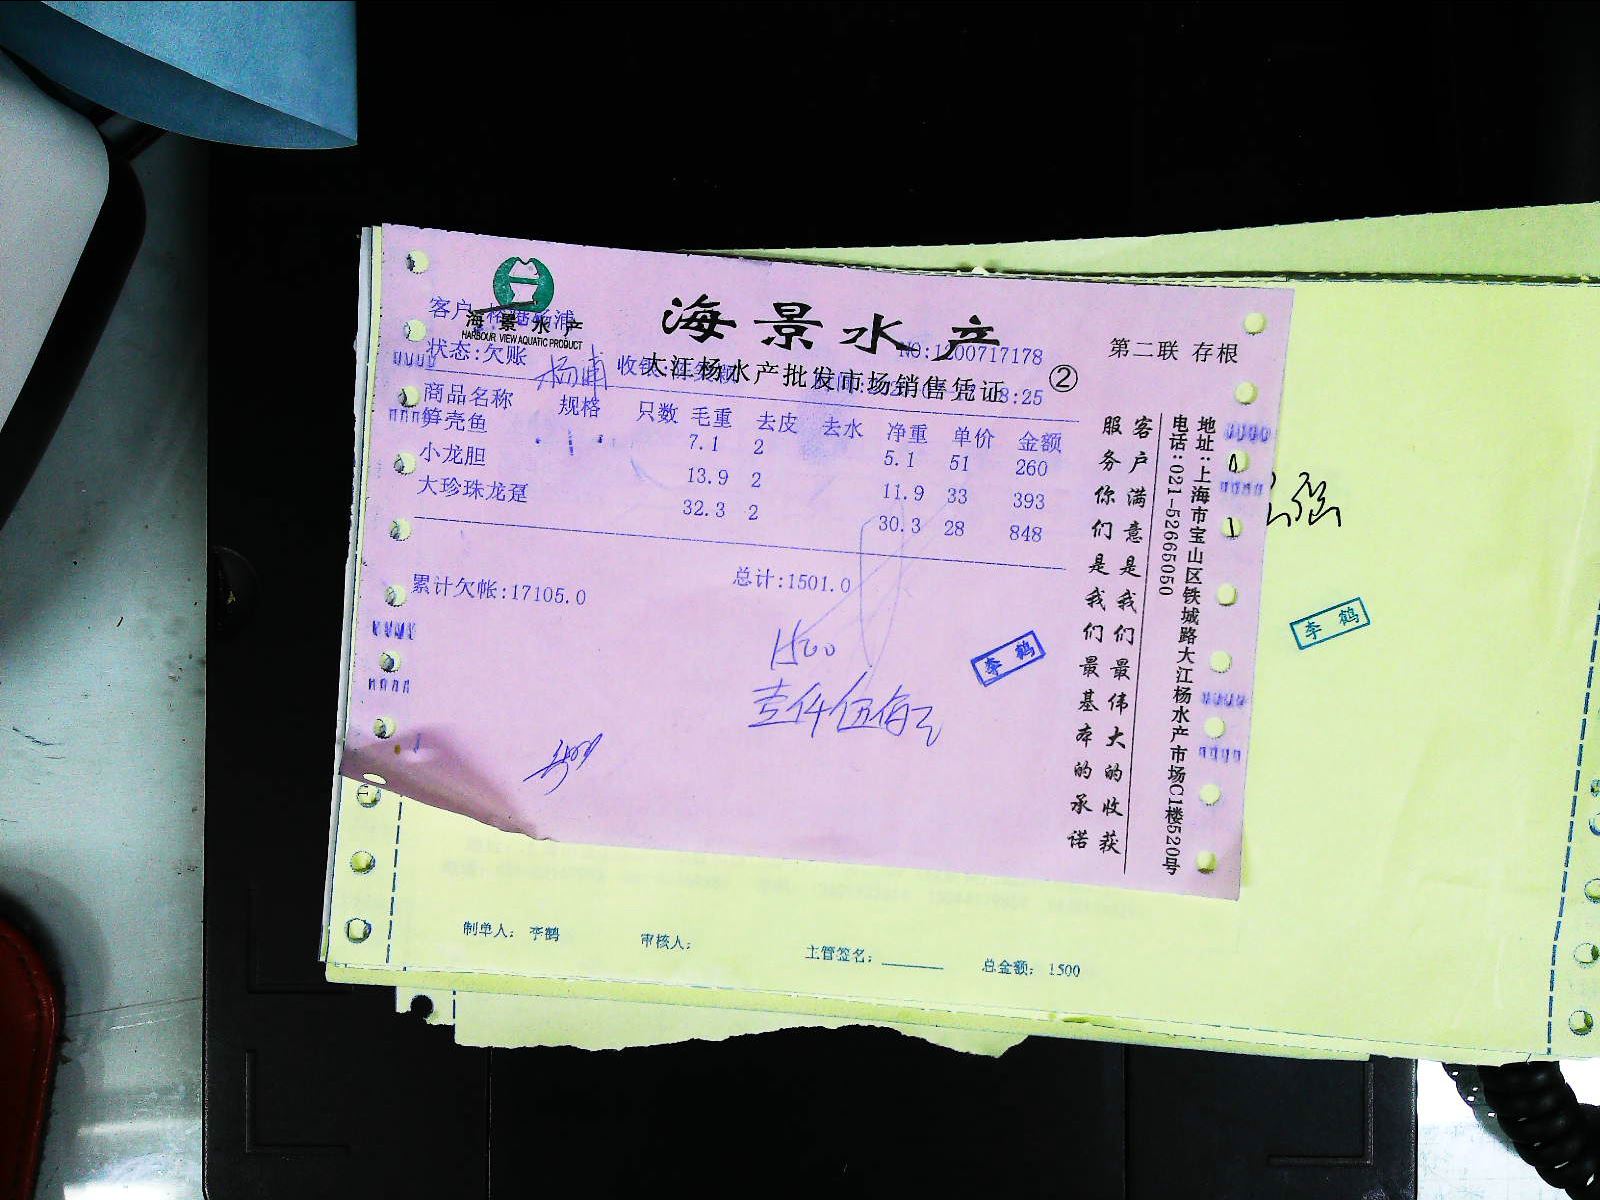 海景水产
HARBOUR VIEW AQUATIC PRODUCT
海景水产
第二联 存根
大江杨水产批发市场销售凭证 ②
客户:
杨浦
NO:1200717178
状态:欠账
杨浦
8:25
商品名称 规格 只数 毛重 去皮 去水 净重 单价 金额
笋壳鱼 7.1 2 5.1 51 260
小龙胆 13.9 2 11.9 33 393
大珍珠龙趸 32.3 2 30.3 28 848
累计欠帐:17105.0 总计:1501.0
1500
壹仟伍佰元
李鹤
客户满意是我们最伟大的收获
服务你们是我们最基本的承诺
地址:上海市宝山区铁城路大江杨水产市场C1楼520号
电话:021-52665050
李鹤
制单人: 李鹤 审核人: 主管签名: 总金额: 1500